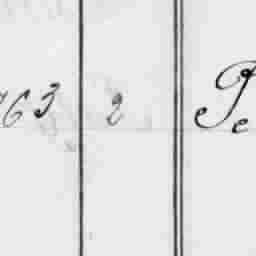 763 2 Pe